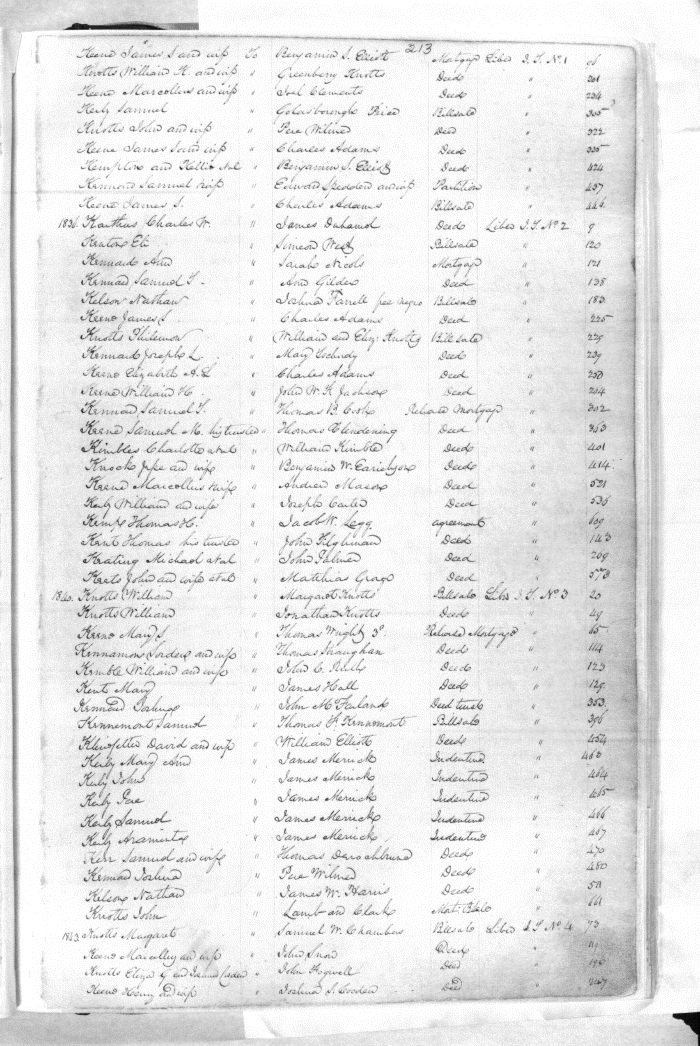 213
Keene James S and wife To Benjamin S. Elliott Mortgage Liber I.T. No 1 06
Knotts William H. and wife " Greenberry Knotts Deed " 201
Keene Marcellus and wife " Joel Clements Deed " 234
Kerly Samuel " Goldsborough Price Billsale " 305
Knotts John and wife " Pere Wilmer Deed " 322
Keene James South wife " Charles Adams Deed " 335
Kempton and Kellie " Benjamin S. Elliott Deed " 424
Kennard Samuel & wife " Edward Spedden and wife Partition " 437
Keene James S. " Charles Adams Billsale " 446
Charles W. " James Duhamel Deed Liber I.T. No 2 9
Eli " Simeon West Billsale " 120
Kennard Ann " Sarah Nicols Mortgage " 121
Kennard Samuel T. " Ann Gilder Deed " 138
Kelson Nathan " Joshua Farrell free negro Billsale " 183
Keene James S " Charles Adams Deed " 225
Knotts Philemon " William and Eliz. Knotts Billsale " 229
Kennard Joseph L. " Mary Deed " 239
Keene Elizabeth A. E " Charles Adams Deed " 250
Keene William H. " John W. H. Jackson Deed " 294
Kennard Samuel T. " Thomas B. Cook Released Mortgage " 302
Keene Samuel M. his trustee " Thomas Clendening Deed " 363
Kimbles Charlotte et al " William Kimble Deed " 401
Knock and wife " Benjamin W. Deed " 414
Keene Marcellus & wife " Andrew Mason Deed " 521
Kerly William and wife " Joseph Carter Deed " 536
Kemp Thomas H. " Jacob W. Legg agreement " 609
Kent Thomas his trustee " John Tilghman Deed " 143
Keating Michael et al " John Palmer Deed " 269
Keets John and wife et al " Matthias George Deed " 573
1840. Knotts William " Margaret Knotts Billsale Liber I.T. No 3 20
Knotts William " Jonathan Knotts Deed " 49
Keene Mary S " Thomas Wright 3d. Released Mortgage " 65
Kinnamon and wife " Thomas Straughan Deed " 114
Kimble William and wife " John C. Ruth Deed " 123
Kent Mary " James Hall Deed " 129
Kennard Joshua " John McFarland Deed trust " 353
Kennemont Samuel " Thomas Kennemont Billsale " 396
Klinefelter David and wife " William Elliott Deed " 454
Kerly Mary Ann " James Merrick Indenture " 463
Kerly John " James Merrick Indenture " 464
Kerly Pere " James Merrick Indenture " 465
Kerly Samuel " James Merrick Indenture " 466
Kerly Araminta " James Merrick Indenture " 467
Kerr Samuel and wife " Thomas Deed " 470
Kennard Joshua " Pere Wilmer Deed " 480
Kelson Nathan " James W. Harris Deed " 511
Knotts John " Lamb and Clark " 661
1843. Knotts Margaret " Samuel W. Chambers Billsale Liber I.T. No 4 73
Keene Marcellus and wife " John Snow Deed " 119
Knotts Eliza and " John Fogwell Deed " 196
Keene Henry and wife " Joshua S. Cooden Deed " 247